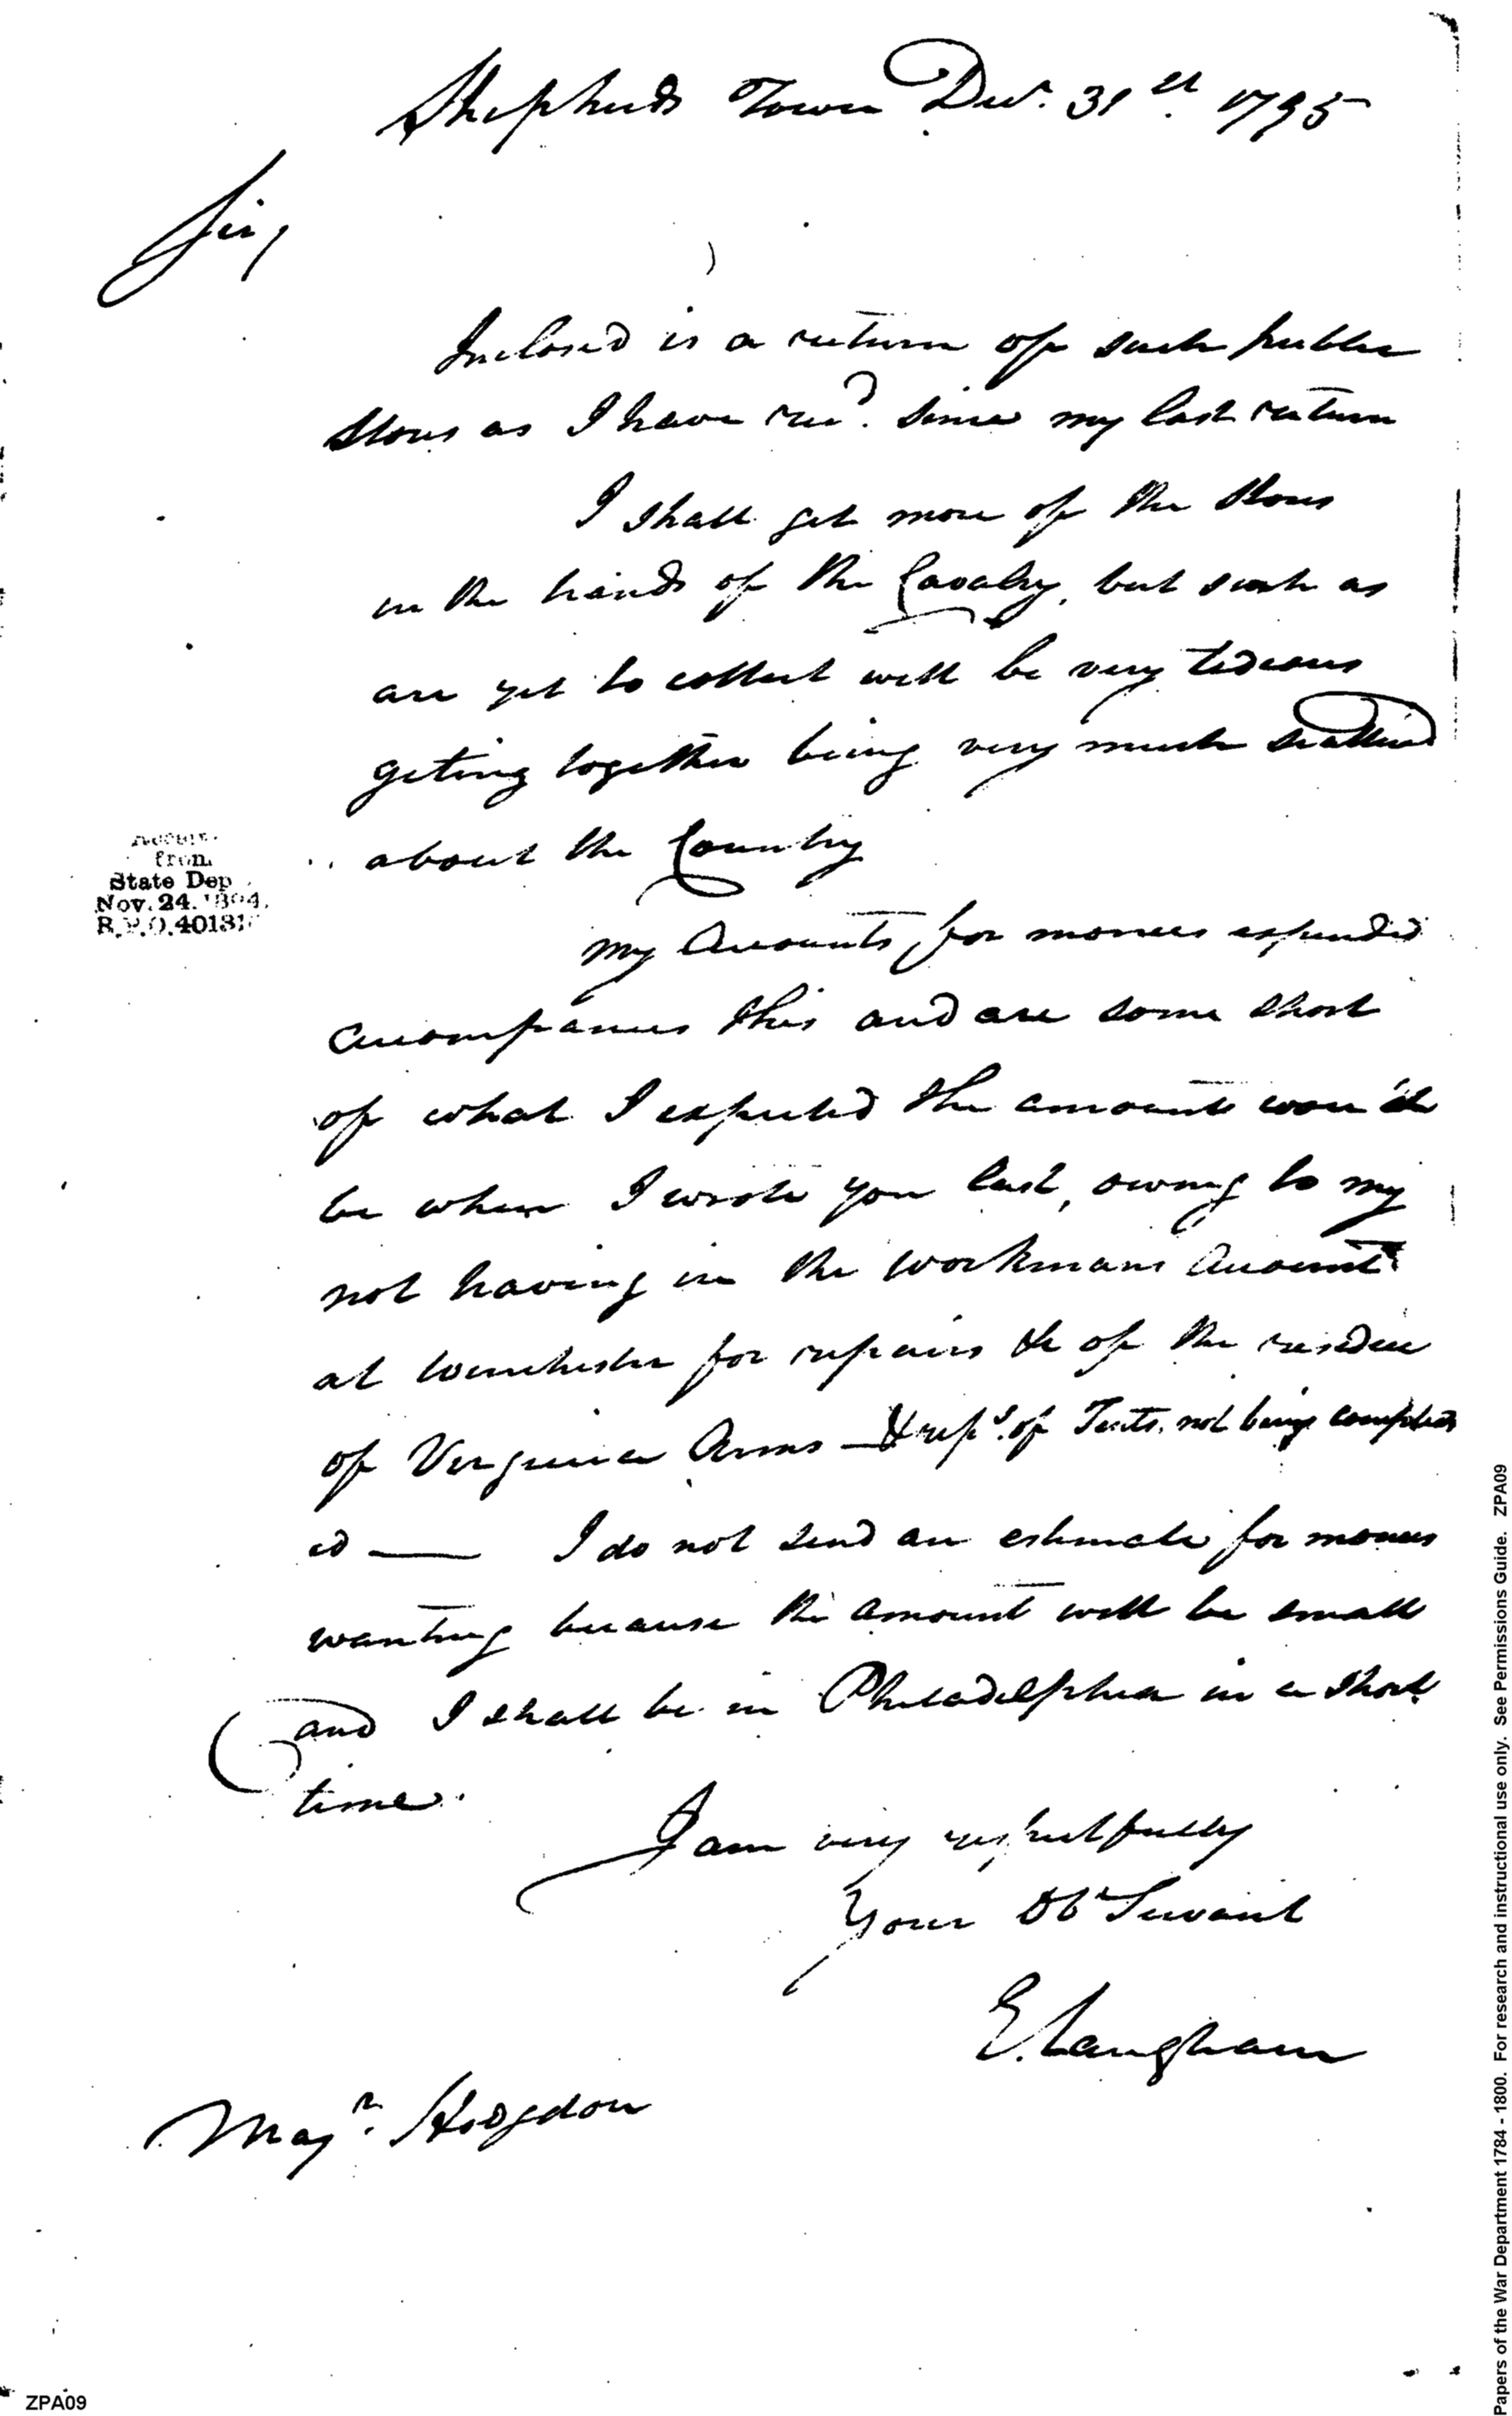 Shepherds Town Decr. 31st. 1795
Sir,
Inclosed is a return of such public
Stores as I have recd. since my last return
I shall get more of the Stores
in the hands of the Cavalry, but such as
are yet to collect will be very tedious
geting together being very much scattered
about the Country
My Accounts for monies expended
accompanies this and are some short
of what I expected the amount wou'd
be when I wrote you last, owing to my
not having in the workmans Account
at Winchester for repairs &c of the residue
of Virginia Arms — & reps. of Tents, not being complet
ed — I do not send an estimate for monies
wanting because the amount will be small
and I shall be in Philadelphia in a short
time.
I am very respectfully
Your Obt Servant
E. Langham
Majr. Hodgdon
from
State Dep
Nov. 24. 1894.
ZPA09
Papers of the War Department 1784 - 1800. For research and instructional use only. See Permissions Guide. ZPA09